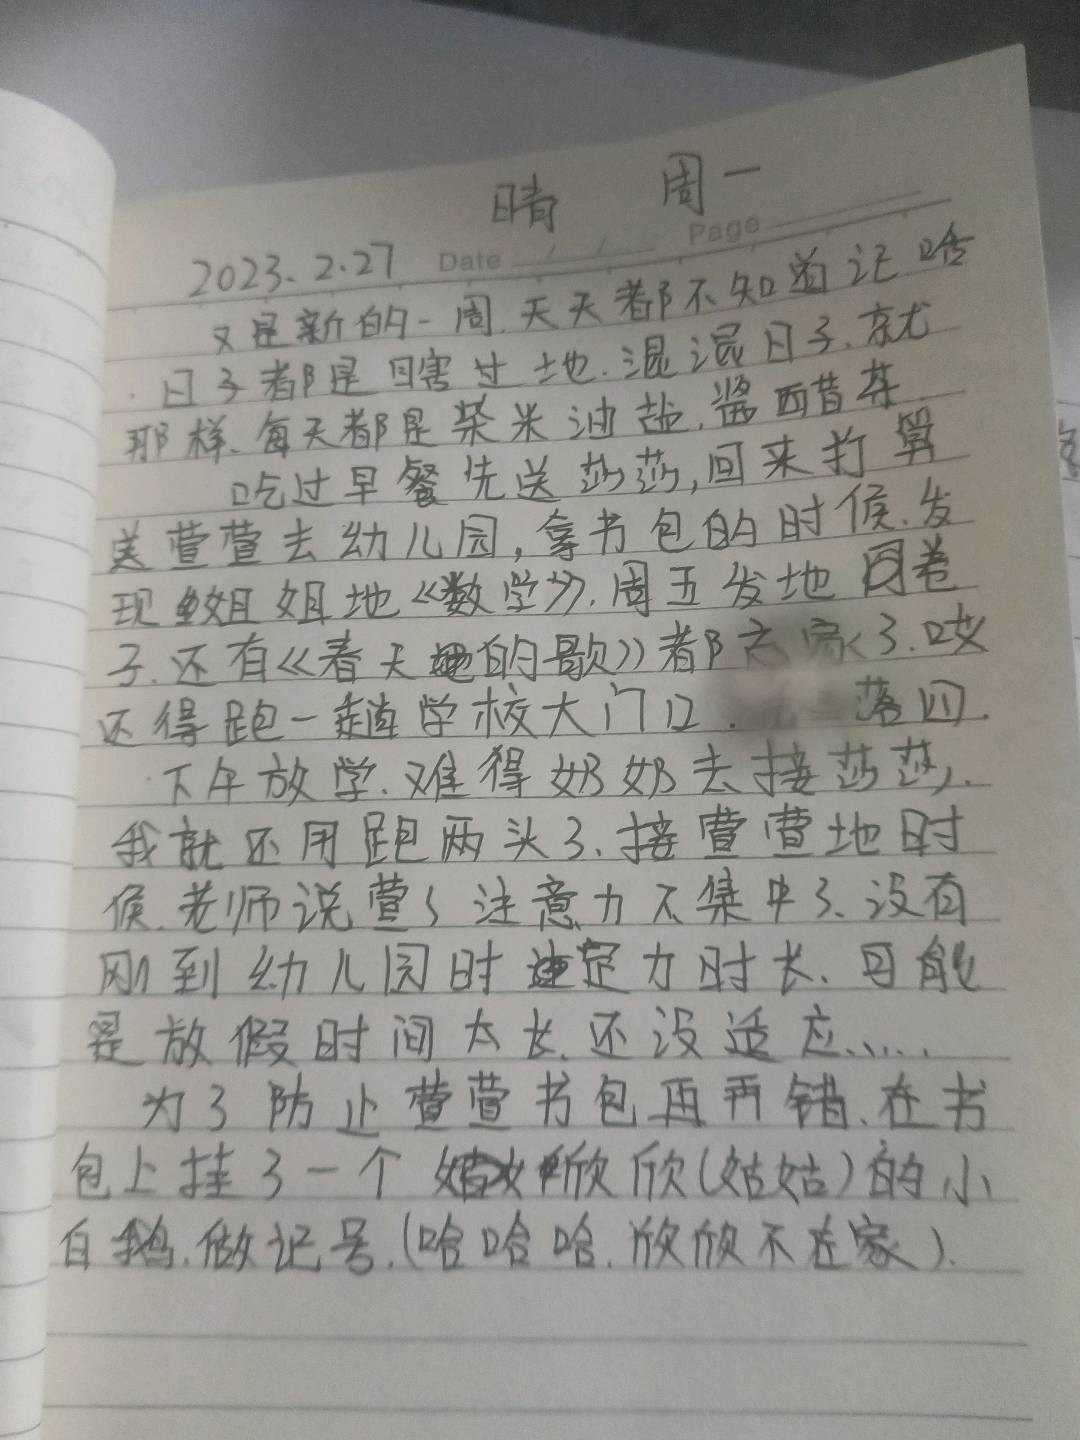 晴 周一
2023.2.27 Date / / Page
又是新的一周.天天都不知道记啥
.日子都是瞎过地.混混日子.就
那样.每天都是柴米油盐.酱醋茶.
吃过早餐先送莎莎,回来打算
送萱萱去幼儿园,拿书包的时候.发
现姐姐地《数学》.周五发地 卷
子.还有《春天的歌》都 家了.哎
还得跑一趟学校大门口. 落四.
.下午放学.难得奶奶去接莎莎.
我就还用跑两头了.接萱萱地时
候.老师说萱〻注意力不集中了.没有
刚到幼儿园时定力时长.可能
是放假时间太长.还没适应.....
为了防止萱萱书包再再错.在书
包上挂了一个 欣欣(姑姑)的小
白鹅.做记号.(哈哈哈.欣欣不在家).